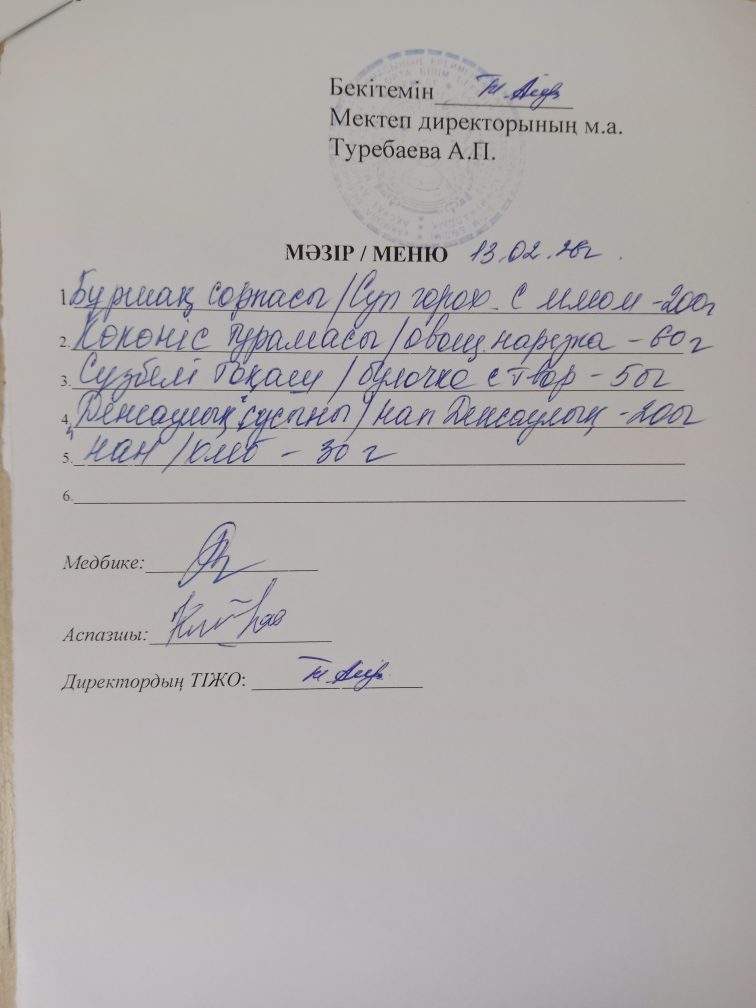 Бекітемін
Мектеп директорының м.а.
Туребаева А.П.
МӘЗІР / МЕНЮ 13.02.26г.
1. Бұршақ сорпасы / Суп горох. с мясом - 200г
2. Көкөніс турамасы / овощ. нарезка - 60 г
3. Сузбелі тоқаш / булочка с твор - 50г
4. "Денсаулық" сусыны / нап Денсаулық - 200г
5. нан / хлеб - 30 г
6.
Медбике:
Аспазшы:
Директордың ТІЖО: